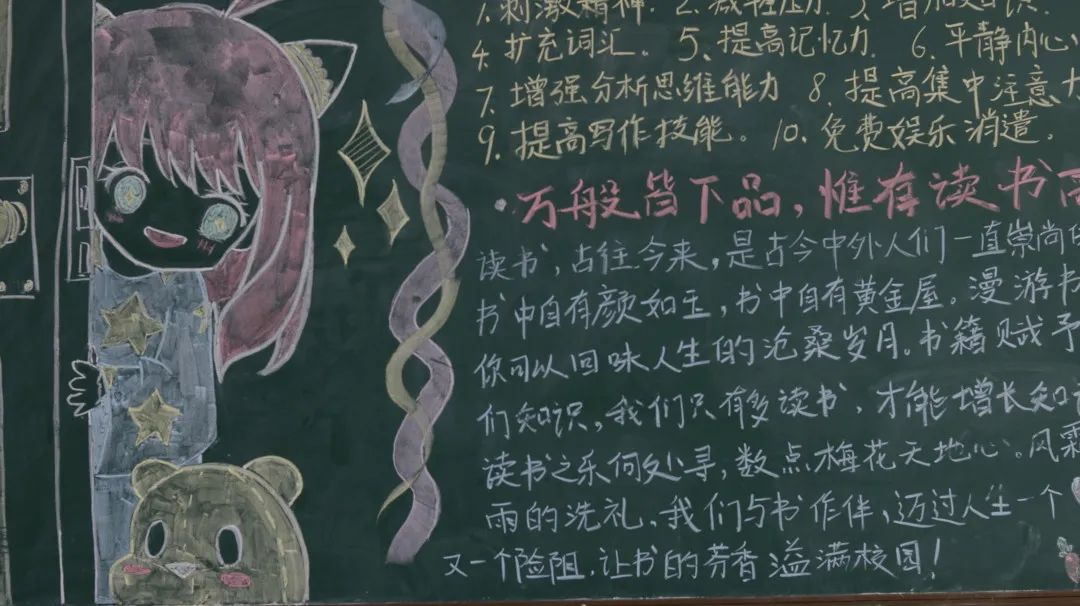 1. 刺激精神. 2. 减轻压力 3. 增加知识.
4. 扩充词汇。 5. 提高记忆力 6. 平静内心
7. 增强分析思维能力 8. 提高集中注意力
9. 提高写作技能。 10. 免费娱乐消遣。
·万般皆下品，惟有读书高
读书，占往今来，是古今中外人们一直崇尚的
书中自有颜如玉，书中自有黄金屋。漫游书
你可以回味人生的沧桑岁月。书籍赋予
们知识，我们只有多读书，才能增长知识
读书之乐何处寻，数点梅花天地心。风霜
雨的洗礼，我们与书作伴，迈过人生一个
又一个险阻，让书的芳香溢满校园！